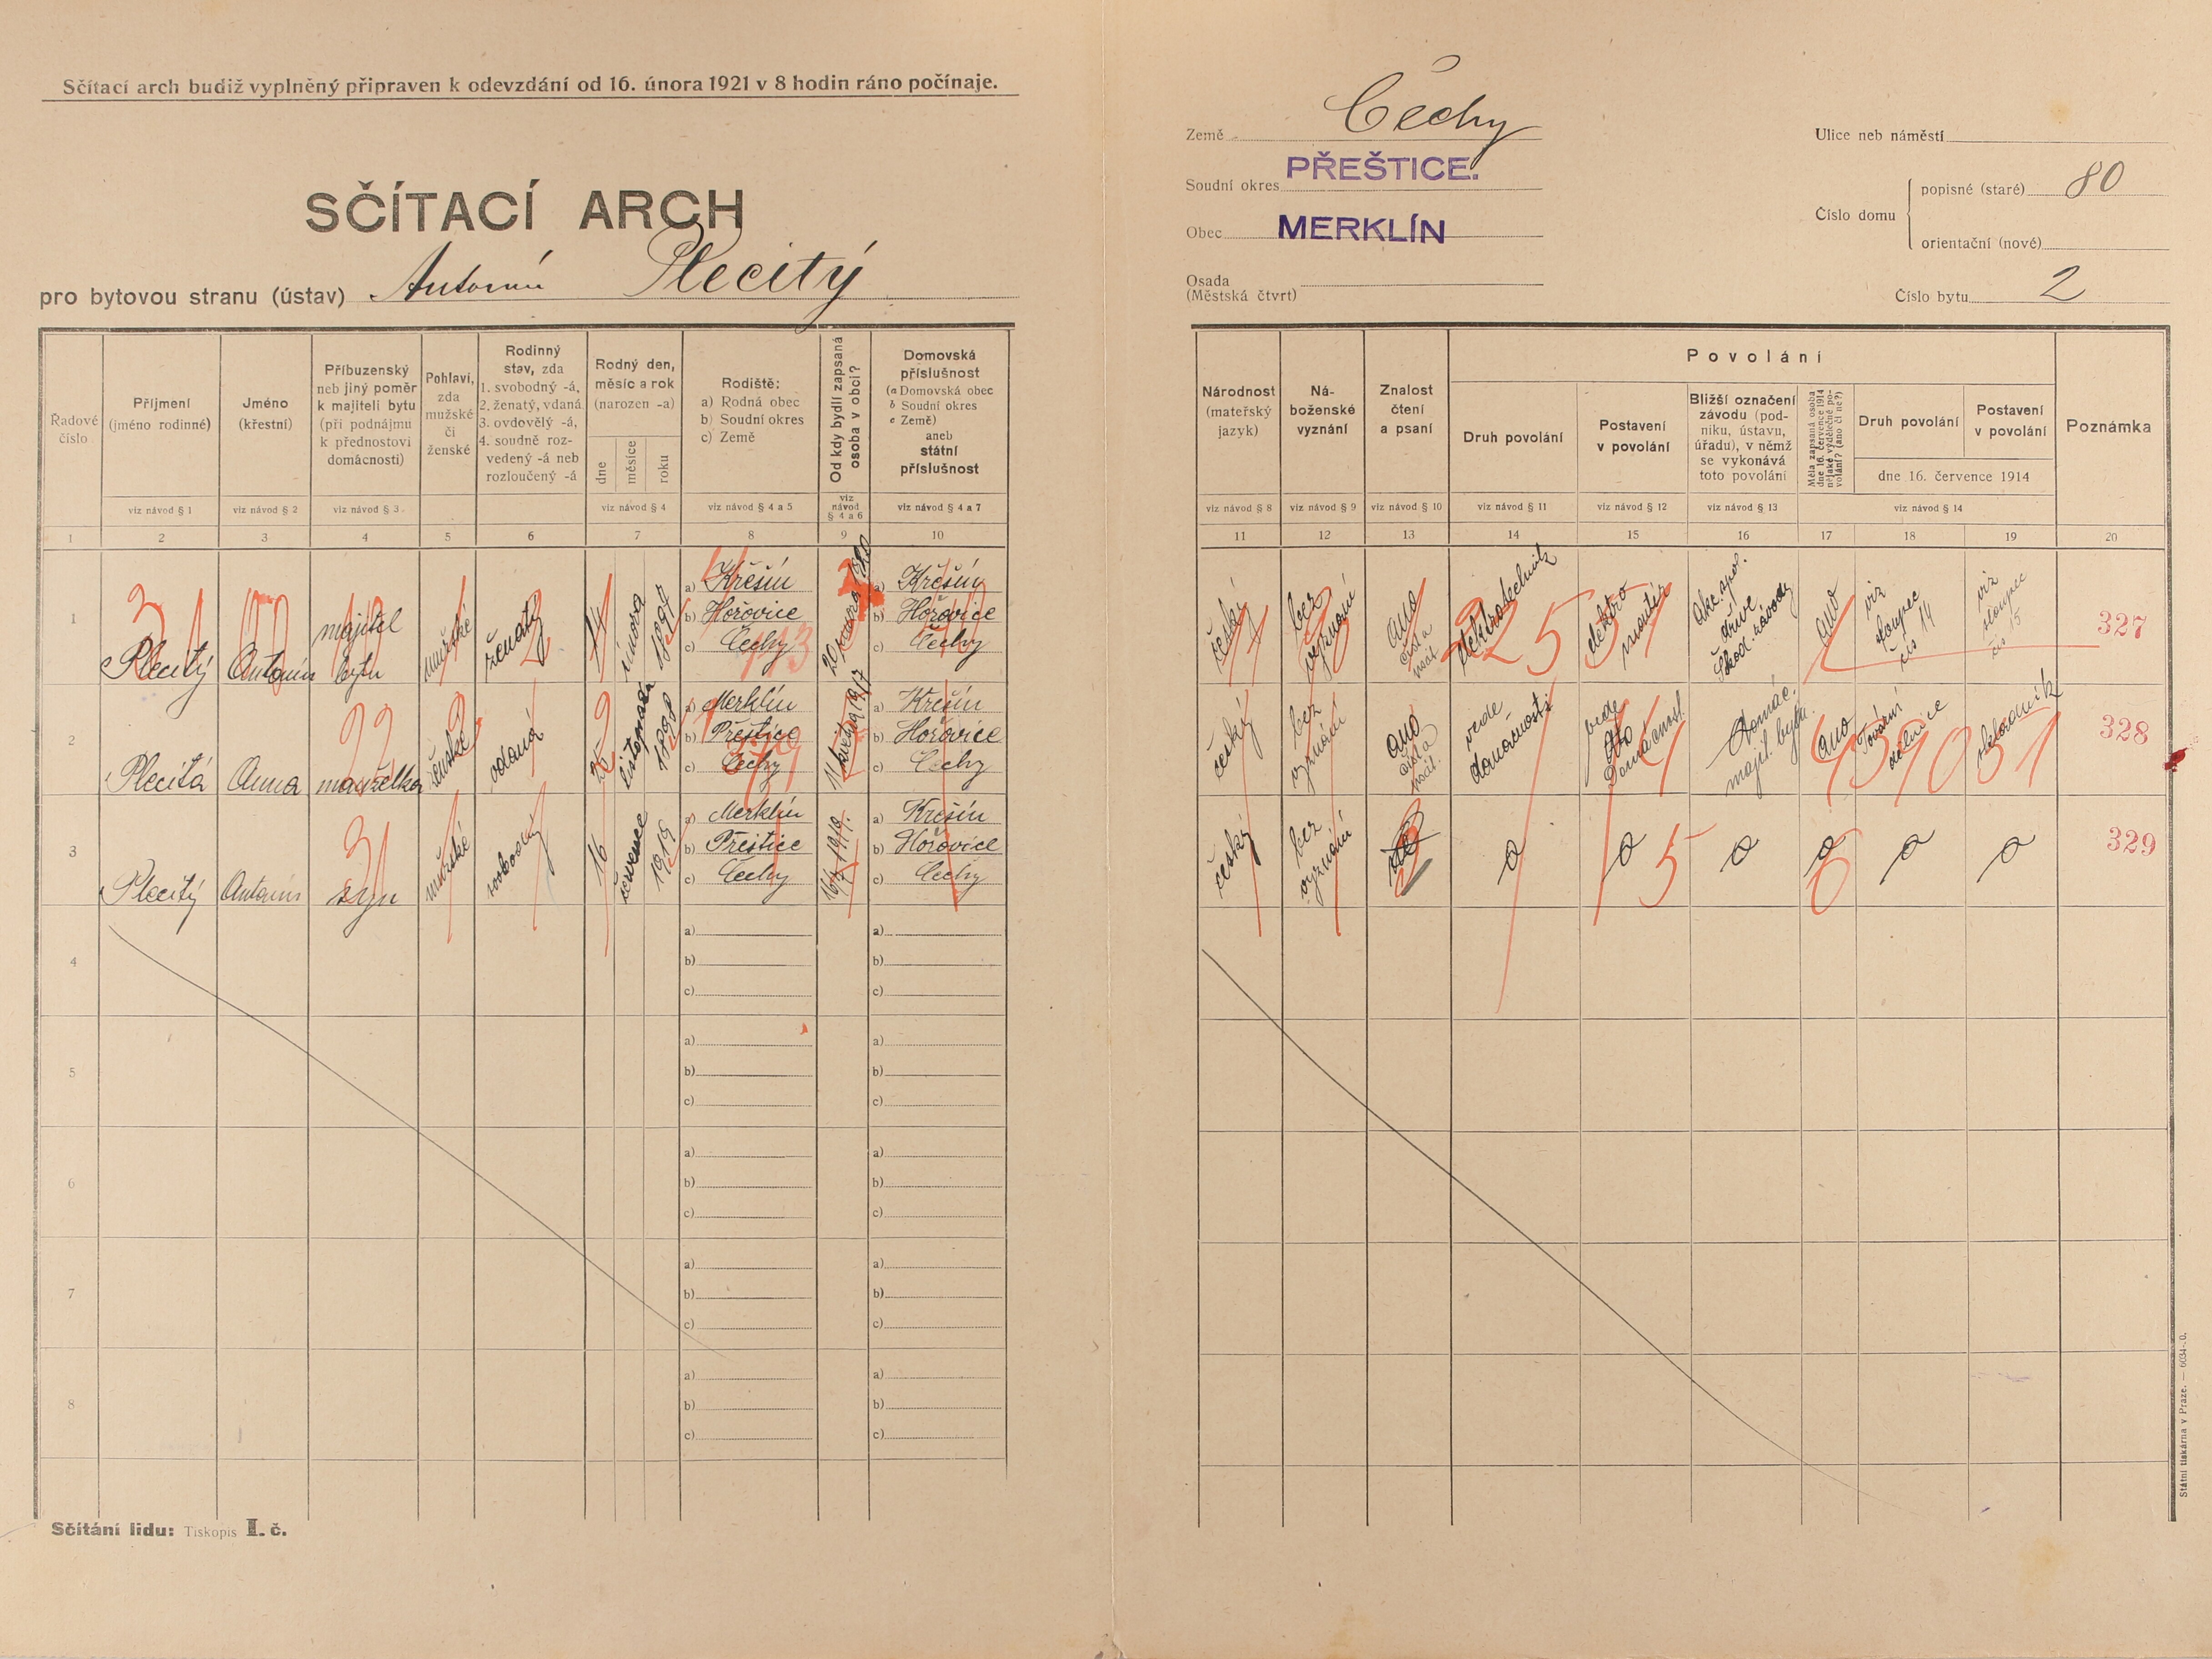 Sčítací arch budiž vyplněný připraven k odevzdání od 16. února 1921 v 8 hodin ráno počínaje.
SČÍTACÍ ARCH
pro bytovou stranu (ústav) Antonín Plecitý
Země Čechy
Soudní okres PŘEŠTICE.
Obec MERKLÍN
Osada
(Městská čtvrt)
Ulice neb náměstí
Číslo domu
popisné (staré) 80
orientační (nové)
Číslo bytu 2
Řadové
číslo
Příjmení
(jméno rodinné)
Jméno
(křestní)
Příbuzenský
neb jiný poměr
k majiteli bytu
(při podnájmu
k přednostovi
domácnosti)
Pohlaví,
zda
mužské
či
ženské
Rodinný
stav, zda
1. svobodný -á,
2. ženatý, vdaná
3. ovdovělý -á,
4. soudně roz-
vedený -á neb
rozloučený -á
Rodný den,
měsíc a rok
(narozen -a)
dne
měsíce
roku
Rodiště:
a) Rodná obec
b) Soudní okres
c) Země
Od kdy bydlí zapsaná
osoba v obci?
Domovská
příslušnost
(a Domovská obec
b Soudní okres
c Země)
aneb
státní
příslušnost
viz návod § 1
viz návod § 2
viz návod § 3
viz návod § 4
viz návod § 4 a 5
viz
návod
§ 4 a 6
viz návod § 4 a 7
1 2 3 4 5 6 7 8 9 10
Národnost
(mateřský
jazyk)
Ná-
boženské
vyznání
Znalost
čtení
a psaní
Povolání
Druh povolání
Postavení
v povolání
Bližší označení
závodu (pod-
niku, ústavu,
úřadu), v němž
se vykonává
toto povolání
Měla zapsaná osoba
dne 16. července 1914
nějaké výdělečné po-
volání? (ano či ne?)
Druh povolání
Postavení
v povolání
dne 16. července 1914
Poznámka
viz návod § 8
viz návod § 9
viz návod § 10
viz návod § 11
viz návod § 12
viz návod § 13
viz návod § 14
11 12 13 14 15 16 17 18 19 20
1
Plecitý
Antonín
majitel
bytu
mužské
ženatý
14
února
1894
a) Křešín
b) Hořovice
c) Čechy
a) Křešín
b) Hořovice
c) Čechy
český
bez
vyznání
ano
čísti a
psát
elektrotechnik
elektro
montér
Akc. spol.
dříve
Škod. závody
ano
viz
sloupec
čís 14
viz
sloupec
čís 15
327
2
Plecitá
Anna
manželka
ženské
vdaná
25
listopadu
1898
a) Merklín
b) Přeštice
c) Čechy
11 května 1917
a) Křešín
b) Hořovice
c) Čechy
český
bez
vyznání
ano
čísti a
psát.
vede
domácnost
vede
domácnost.
domác.
majit. bytu.
ano
Tovární
dělnice
328
3
Plecitý
Antonín
syn
mužské
svobodný
16
července
1919
a) Merklín
b) Přeštice
c) Čechy
16/7 1919.
a) Křešín
b) Hořovice
c) Čechy
český
bez
vyznání
0 0 0 0 0 0
329
4
a)
b)
c)
a)
b)
c)
5
a)
b)
c)
a)
b)
c)
6
a)
b)
c)
a)
b)
c)
7
a)
b)
c)
a)
b)
c)
8
a)
b)
c)
a)
b)
c)
Sčítání lidu: Tiskopis I. č.
Státní tiskárna v Praze. — 6034-20.